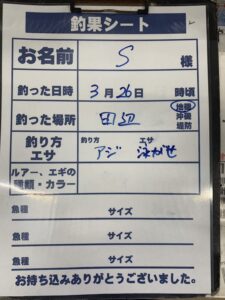 釣果シート
お名前 S 様
釣った日時 3月26日 時頃
釣った場所 田辺 地磯 沖磯 堤防
釣り方 エサ 釣り方 アジ エサ 泳がせ
ルアー、エギの種類・カラー
魚種 サイズ
魚種 サイズ
魚種 サイズ
お持ち込みありがとうございました。